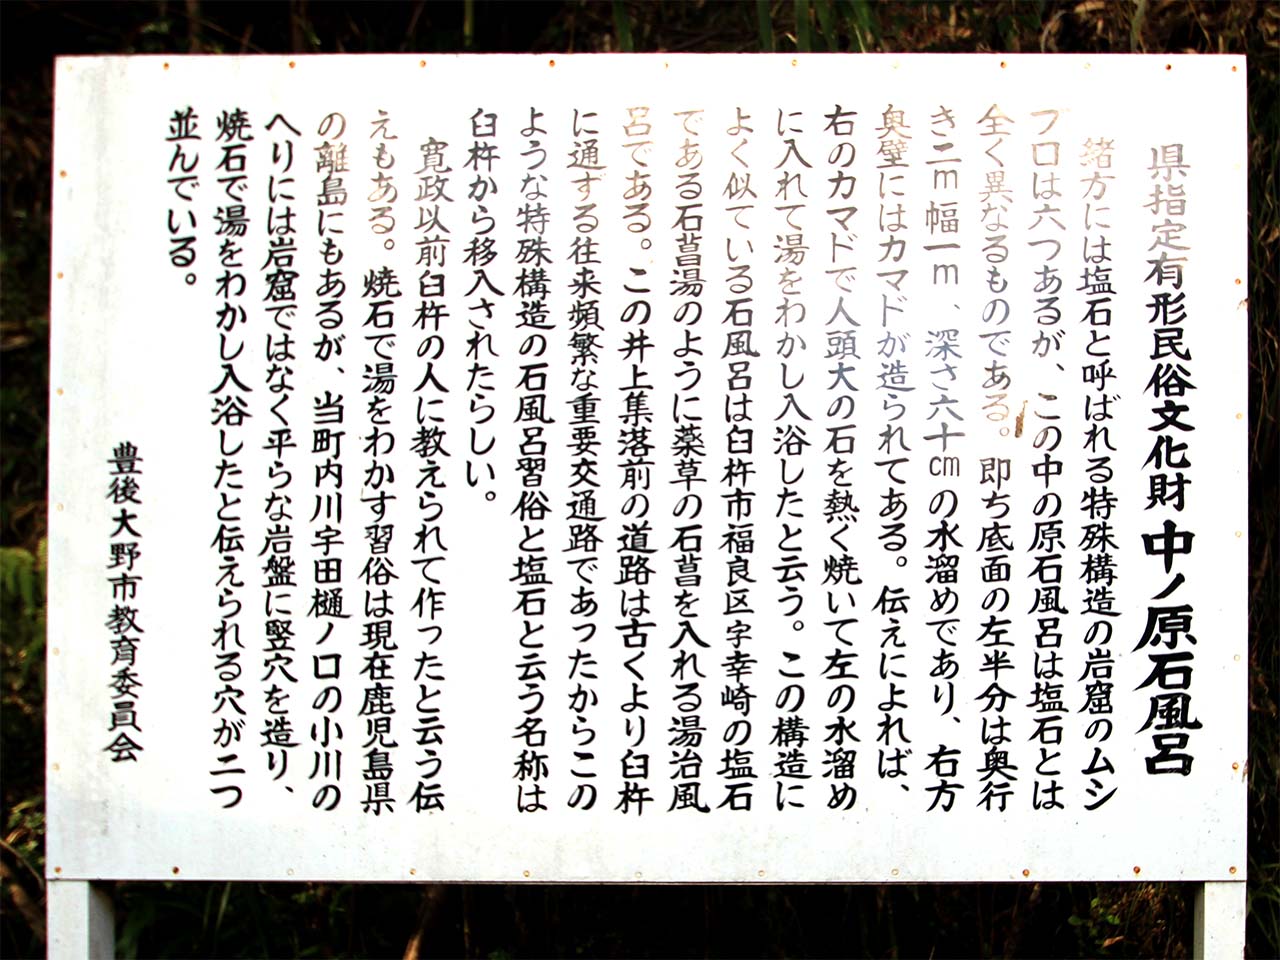 県指定有形民俗文化財 中ノ原石風呂
緒方には塩石と呼ばれる特殊構造の岩窟のムシ
ブロは六つあるが、この中の原石風呂は塩石とは
全く異なるものである。即ち底面の左半分は奥行
き二m幅一m、深さ六十㎝の水溜めであり、右方
奥壁にはカマドが造られてある。伝えによれば、
右のカマドで人頭大の石を熱く焼いて左の水溜め
に入れて湯をわかし入浴したと云う。この構造に
よく似ている石風呂は臼杵市福良区字幸崎の塩石
である石菖湯のように薬草の石菖を入れる湯治風
呂である。この井上集落前の道路は古くより臼杵
に通ずる往来頻繁な重要交通路であったからこの
ような特殊構造の石風呂習俗と塩石と云う名称は
臼杵から移入されたらしい。
寛政以前臼杵の人に教えられて作ったと云う伝
えもある。焼石で湯をわかす習俗は現在鹿児島県
の離島にもあるが、当町内川宇田樋ノ口の小川の
へりには岩窟ではなく平らな岩盤に竪穴を造り、
焼石で湯をわかし入浴したと伝えられる穴が二つ
並んでいる。
豊後大野市教育委員会